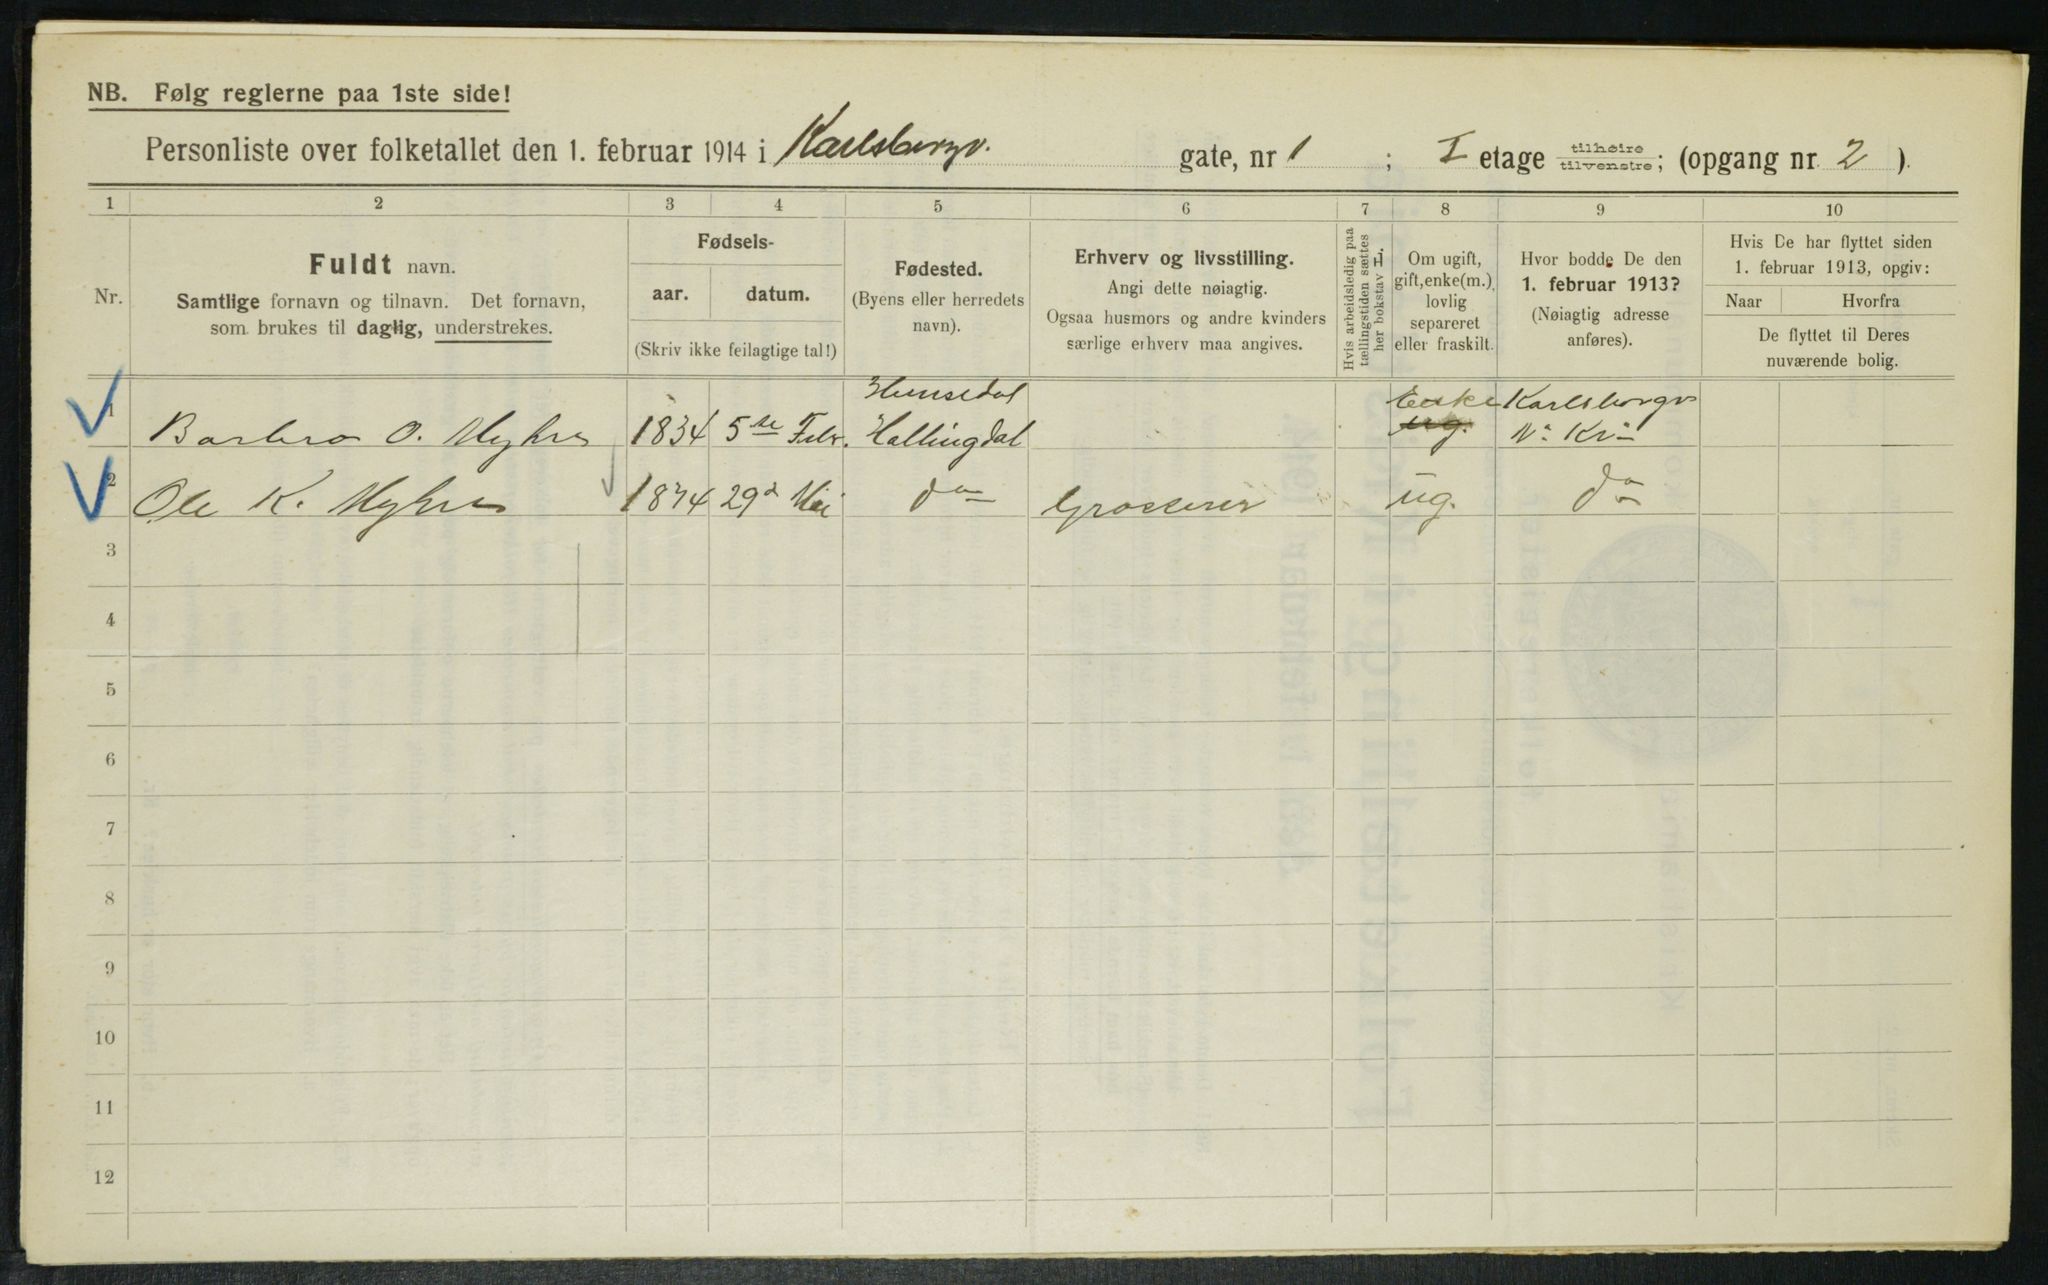 NB. Følg reglerne paa 1ste side!
Personliste over folketallet den 1. februar 1914 i Karlsborgv. gate, nr 1 ; I etage tilhøire tilvenstre; (opgang nr 2 ).
1 2 3 4 5 6 7 8 9 10
Nr.
Fuldt navn.
Samtlige fornavn og tilnavn. Det fornavn,
som brukes til daglig, understrekes.
Fødsels-
aar. datum.
(Skriv ikke feilagtige tal!)
Fødested.
(Byens eller herredets
navn).
Erhverv og livsstilling.
Angi dette nøiagtig.
Ogsaa husmors og andre kvinders
særlige erhverv maa angives.
Hvis arbeidsledig paa
tællingstiden sættes
her bokstav L.
Om ugift,
gift, enke(m.),
lovlig
separeret
eller fraskilt.
Hvor bodde De den
1. februar 1913?
(Nøiagtig adresse
anføres).
Hvis De har flyttet siden
1. februar 1913, opgiv:
Naar Hvorfra
De flyttet til Deres
nuværende bolig.
1 Barbro O. Myhre 1834 5te Febr. Hemsedal Hallingdal Enke ug. Karlsborgv
2 Ole K. Myhre 1874 29d Mai do Grosserer ug. do
3
4
5
6
7
8
9
10
11
12